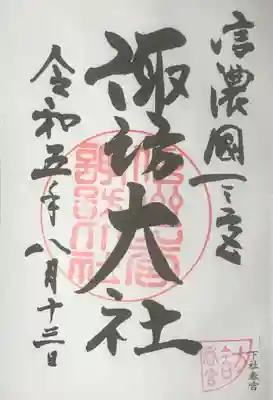 信濃國一之宮
諏訪大社
令和五年八月十三日
下社春宮